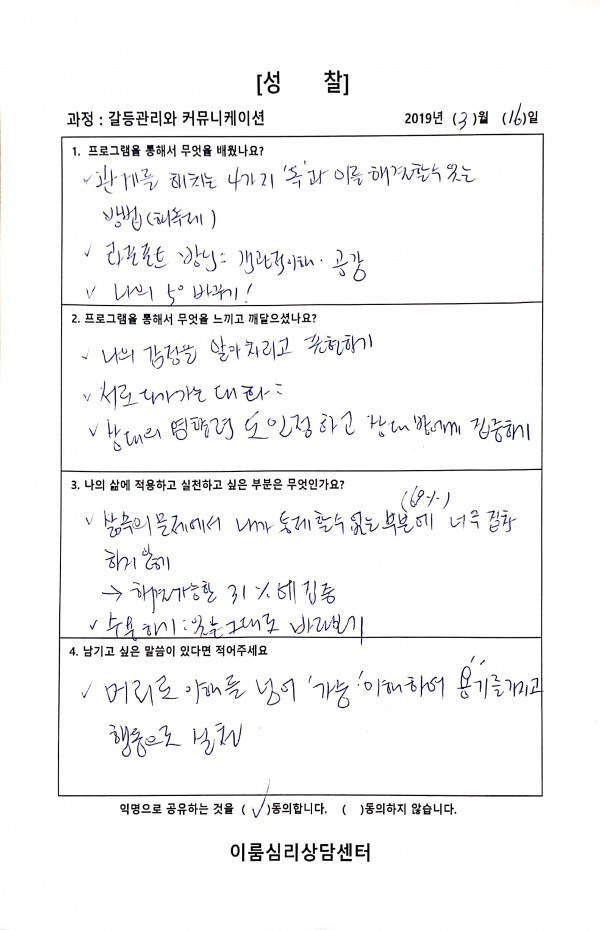 [성 찰]
과정 : 갈등관리와 커뮤니케이션 2019년 (3)월 (16)일
1. 프로그램을 통해서 무엇을 배웠나요?
✓ 관계를 해치는 4가지 '독'과 이를 해결할수있는
방법(해독제)
✓ 라포포트 방식: 객관적이해·공감
✓ 나의 5° 바꾸기!
2. 프로그램을 통해서 무엇을 느끼고 깨달으셨나요?
✓ 나의 감정을 알아차리고 표현하기
✓ 서로 다가가는 대화:
✓ 상대의 영향력도 인정하고 상대방에게 집중하기
3. 나의 삶에 적용하고 실천하고 싶은 부분은 무엇인가요?
(69%)
✓ 삶속의 문제에서 내가 통제할수없는 부분에 너무 집착
하지 않기
→ 해결가능한 31%에 집중
✓ 수용하기: 있는그대로 바라보기
4. 남기고 싶은 말씀이 있다면 적어주세요
✓ 머리로 이해를 넘어 '가슴' 이해하여 용기를 가지고
행동으로 실천
익명으로 공유하는 것을 (✓)동의합니다. ( )동의하지 않습니다.
이룸심리상담센터